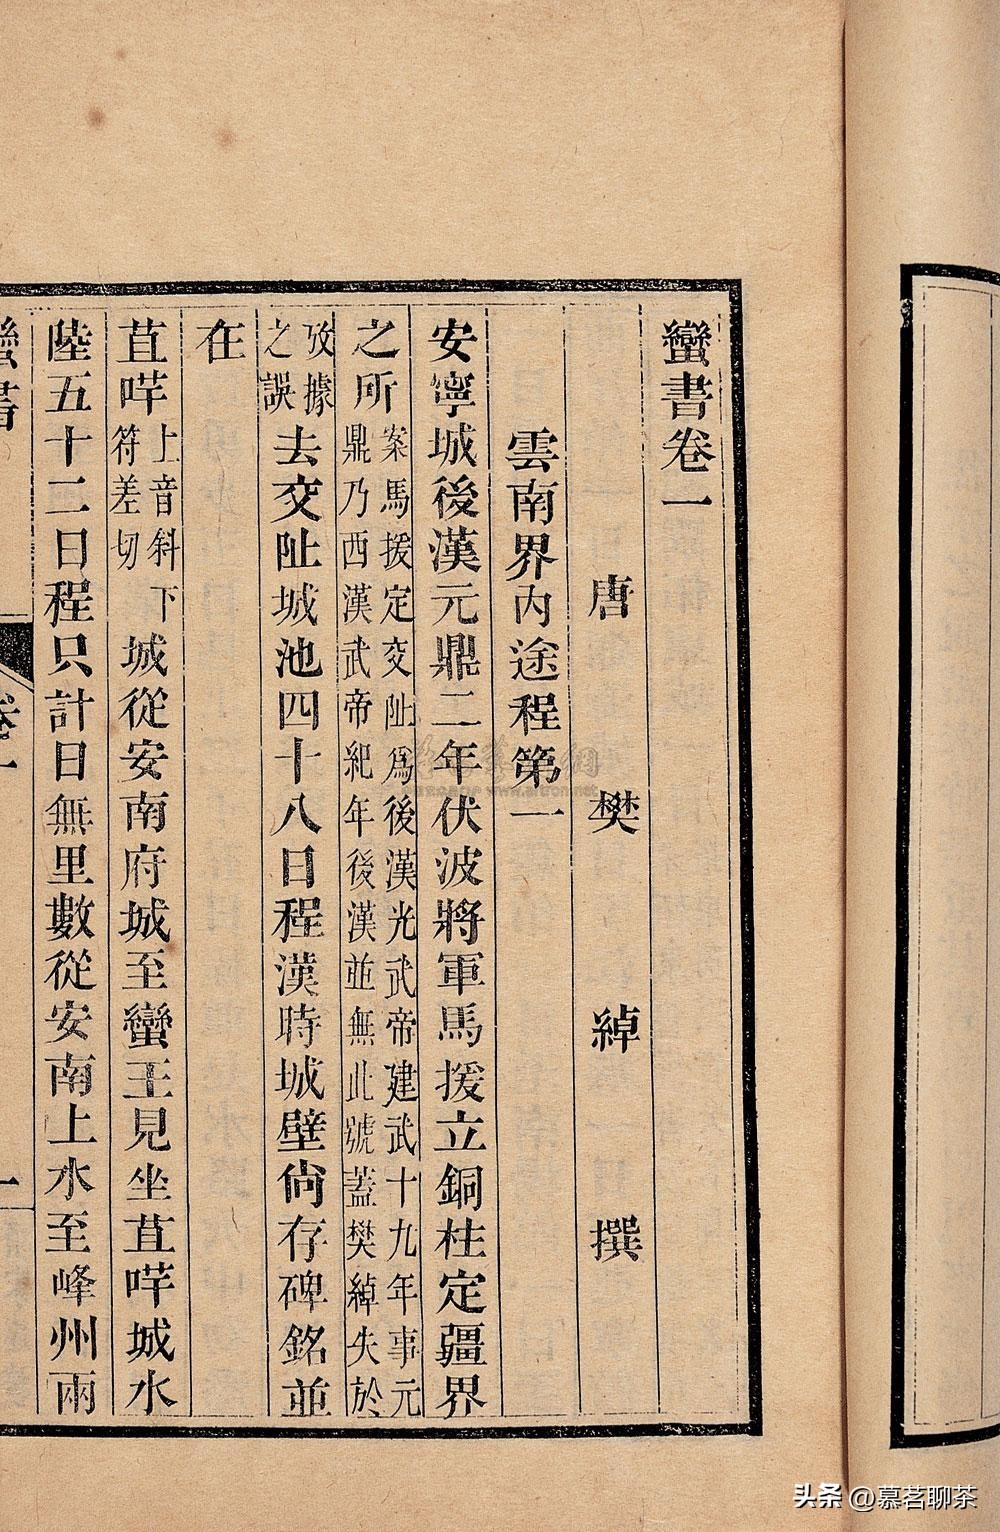 蠻書卷一
唐樊綽撰
雲南界內途程第一
安寧城後漢元鼎二年伏波將軍馬援立銅柱定疆界
之所案馬援定交阯為後漢光武帝建武十九年事元鼎乃西漢武帝紀年後漢並無此號蓋樊綽失於
攷據之誤去交阯城池四十八日程漢時城壁尙存碑銘並
在
苴咩上音斜下符差切城從安南府城至蠻王見坐苴咩城水
陸五十二日程只計日無里數從安南上水至峰州兩
蠻書
卷一
一
头条 @慕茗聊茶